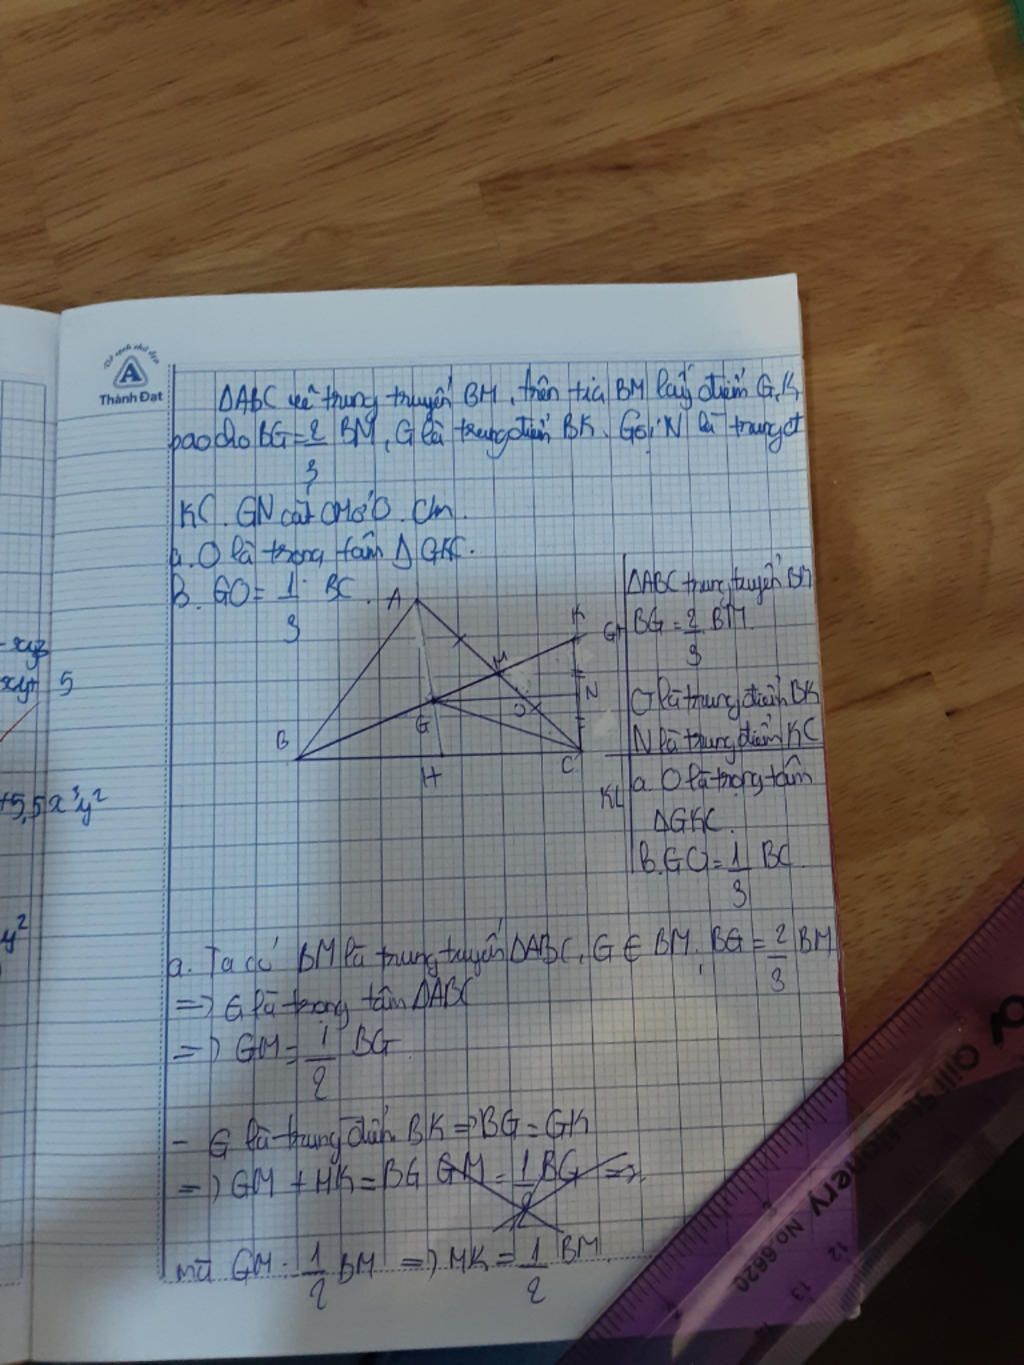 Thành Đạt
ΔABC vẽ trung truyến BM, trên tia BM lấy điểm G, K
sao cho BG = 2/3 BM, G là trung điểm BK. Gọi N là trung đ
KC. GN cắt CM ở O. Cm.
a. O là trọng tâm Δ GKC.
B. GO = 1/3 BC.
A
K
M
N
G
O
B
H
C
GT
ΔABC trung tuyến BM
BG = 2/3 BM.
G là trung điểm BK
N là trung điểm KC
KL
a. O là trọng tâm
ΔGKC.
B. GO = 1/3 BC.
a. Ta có BM là trung tuyến ΔABC, G ∈ BM, BG = 2/3 BM
=> G là trọng tâm ΔABC
=> GM = 1/2 BG
- G là trung điểm BK => BG = GK
=> GM + MK = BG GM = 1/2 BG =>
mà GM = 1/2 BM => MK = 1/2 BM.
xy 5
+5,5x³y²
y²
No.6620
12
13